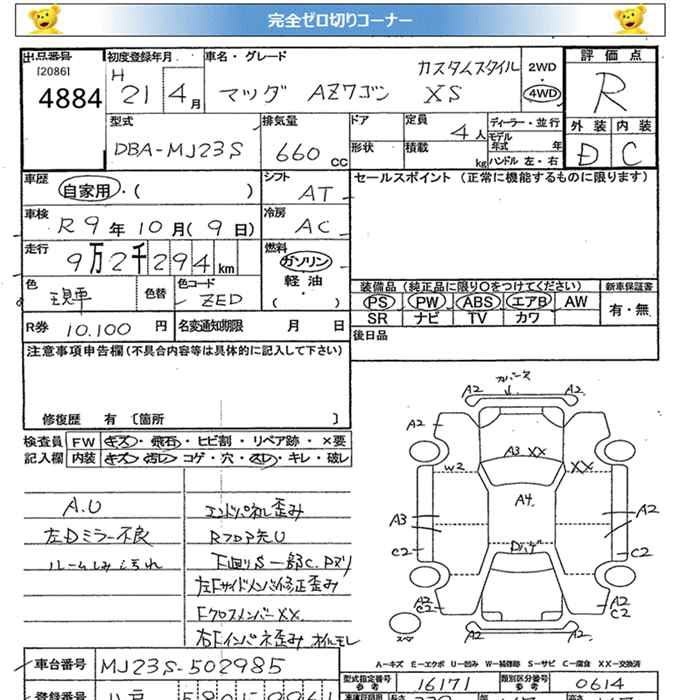 完全ゼロ切りコーナー
出品番号 初度登録年月 車名・グレード 評価点
[2086] H 21年 4月 マツダ AZワゴン カスタムスタイル XS 2WD 4WD R
4884
型式 排気量 ドア 定員 4人 ディーラー・並行 外装 内装
DBA-MJ23S 660cc 形状 積載 kg モデル年式 年 ハンドル 左・右 D C
車歴 自家用・( ) シフト AT セールスポイント (正常に機能するものに限ります)
車検 R9年10月(9日) 冷房 AC
走行 9万2千294km 燃料 ガソリン 軽油 ( )
色 現車 色替 色コード ZED
装備品 (純正品に限り○をつけてください) 新車保証書
PS PW ABS エアB AW 有・無
SR ナビ TV カワ
R券 10,100円 名変通知期限 月 日 後日品
注意事項申告欄(不具合内容等は具体的に記入して下さい)
修復歴 有 〔箇所 〕
検査員 FW キズ・飛石・ヒビ割・リペア跡・×要
記入欄 内装 キズ・汚レ・コゲ・穴・スレ・キレ・破レ
A.U
左Dミラー不良
ルームしみ汚れ
エンドパネル歪み
Rフロア先U
下回りS一部C.Pヌリ
左Fサイドメンバ修正歪み
FクロスメンバーXX.
右Fインパネ歪み オイルモレ
カバーX
A2 A2
A2
A3 XX
W2 XX
A4
A3 A2
C2 C2
A2 C2 A2 C2
A2 A2
A-キズ E-エクボ U-凹み W-補修跡 S-サビ C-腐食 XX-交換済
車台番号 MJ23S-502985
型式指定番号 参考 16171 類別区分番号 参考 0614
登録番号